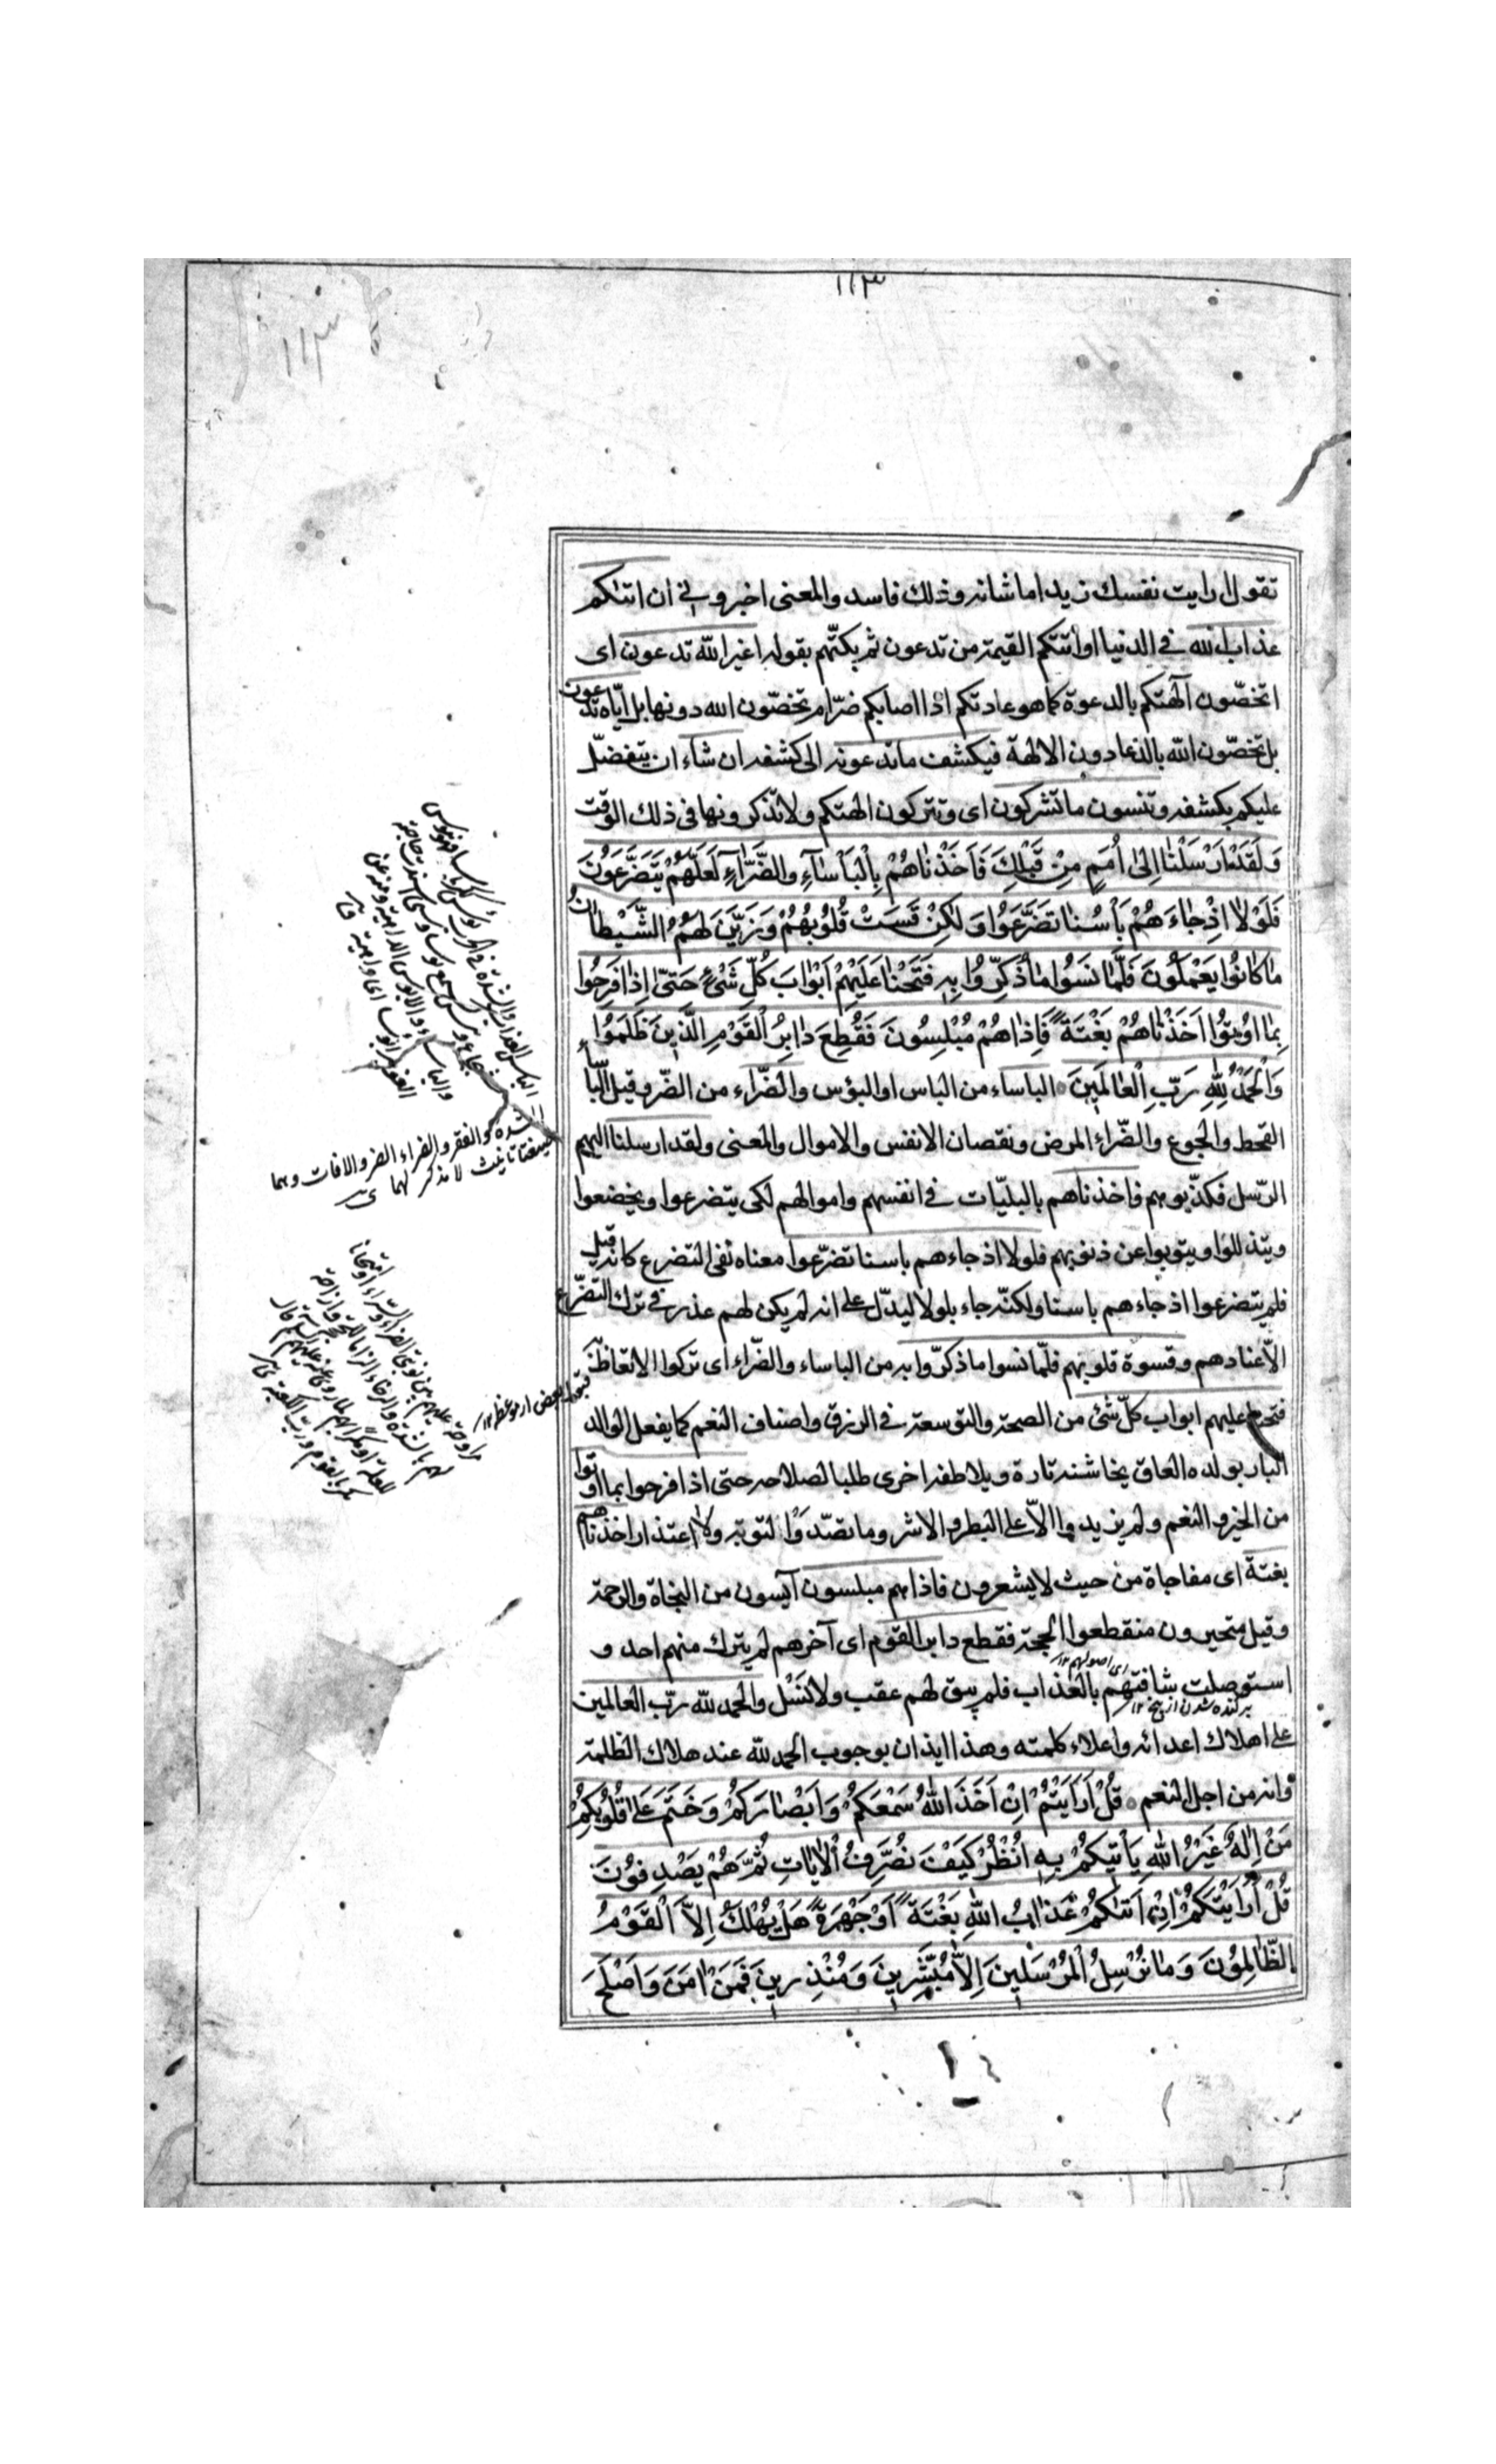 ١١٣
١١٣
تقول ارايت نفسك زيدا ما شانه وذلك فاسد والمعنى اخبروني ان اتىكم
عذاب الله في الدنيا او اتتكم القيمة من تدعون ثم بكتهم بقوله اغير الله تدعون اى
اتخصّون آلهتكم بالدعوة كما هو عادتكم اذا اصابكم ضرّ ام تخصّون الله دونها بل ايّاه تدعون
بل تخصّون الله بالدعاء دون الالهة فيكشف ما تدعونه الى كشفه ان شاء ان يتفضّل
عليكم بكشفه وتنسون ما تشركون اى وتتركون الهتكم ولا تذكرونها فى ذلك الوقت
وَلَقَدْ اَرْسَلْنٰا اِلىٰ اُمَمٍ مِنْ قَبْلِكَ فَاَخَذْنٰاهُمْ بِالْبَأْسٰآءِ وَالضَّرّٰآءِ لَعَلَّهُمْ يَتَضَرَّعُونَ
فَلَوْلٰا اِذْ جٰاءَهُمْ بَأْسُنٰا تَضَرَّعُوا وَلٰكِنْ قَسَتْ قُلُوبُهُمْ وَزَيَّنَ لَهُمُ الشَّيْطٰانُ
مٰا كٰانُوا يَعْمَلُونَ فَلَمّٰا نَسُوا مٰا ذُكِّرُوا بِهِ فَتَحْنٰا عَلَيْهِمْ اَبْوٰابَ كُلِّ شَىْءٍ حَتّىٰ اِذٰا فَرِحُوا
بِمٰا اُوتُوا اَخَذْنٰاهُمْ بَغْتَةً فَاِذٰاهُمْ مُبْلِسُونَ فَقُطِعَ دٰابِرُ الْقَوْمِ الَّذِينَ ظَلَمُوا
وَالْحَمْدُ لِلّٰهِ رَبِّ الْعٰالَمِينَ الباساء من الباس او البؤس والضّراء من الضّر وقيل الباساء
القحط والجوع والضّراء المرض ونقصان الانفس والاموال والمعنى ولقد ارسلنا اليهم
الرّسل فكذّبوهم فاخذناهم بالبليّات في انفسهم واموالهم لكى يتضرعوا ويخضعوا
ويتذللوا ويتوبوا عن ذنوبهم فلولا اذ جاءهم باسنا تضرّعوا معناه نفى التضرع كانه قيل
فلم يتضرعوا اذ جاءهم باسنا ولكنّه جاء بلولا ليدلّ على انه لم يكن لهم عذر في ترك التضرّع
الّا عنادهم وقسوة قلوبهم فلمّا نسوا ما ذكّروا به من الباساء والضّراء اى تركوا الاتعاظ به
فتحنا عليهم ابواب كلّ شئ من الصحة والتوسعة في الرزق واصناف النعم كما يفعل الوالد
البار بولده العاق يخاشنه تارة ويلاطفه اخرى طلبا لصلاحه حتى اذا فرحوا بما اوتوا
من الخير والنعم ولم يزيدوا الّا على البطر والاشر وما تصدّوا لتوبة ولا اعتذار اخذناهم
بغتة اى مفاجاة من حيث لا يشعرون فاذاهم مبلسون آيسون من النجاة والرحمة
وقيل متحيرون منقطعوا الحجة فقطع دابر القوم اى آخرهم لم يترك منهم احد و
اى اصولهم ١٢
استوصلت شافتهم بالعذاب فلم يبق لهم عقب ولا نسل والحمد لله ربّ العالمين
بركنده شدن از بيخ ١٢
على اهلاك اعدائه واعلاء كلمته وهذا ايذان بوجوب الحمد لله عند هلاك الظلمة
وانه من اجل النعم قُلْ اَرَاَيْتُمْ اِنْ اَخَذَ اللّٰهُ سَمْعَكُمْ وَاَبْصٰارَكُمْ وَخَتَمَ عَلىٰ قُلُوبِكُمْ
مَنْ اِلٰهٌ غَيْرُ اللّٰهِ يَأْتِيكُمْ بِهِ اُنْظُرْ كَيْفَ نُصَرِّفُ الْاٰيٰاتِ ثُمَّ هُمْ يَصْدِفُونَ
قُلْ اَرَاَيْتَكُمْ اِنْ اَتٰىكُمْ عَذٰابُ اللّٰهِ بَغْتَةً اَوْ جَهْرَةً هَلْ يُهْلَكُ اِلَّا الْقَوْمُ
الظّٰالِمُونَ وَمٰا نُرْسِلُ الْمُرْسَلِينَ اِلّٰا مُبَشِّرِينَ وَمُنْذِرِينَ فَمَنْ اٰمَنَ وَاَصْلَحَ
الشدة والفقر والضراء الضر والافات وهما
صيغتا تانيث لا مذكر لهما